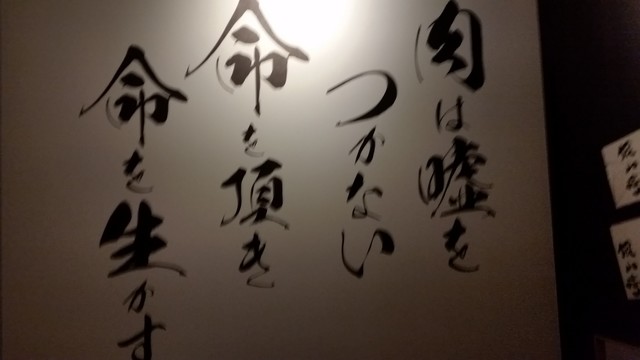 肉は嘘を
つかない
命を頂き
命を生かす